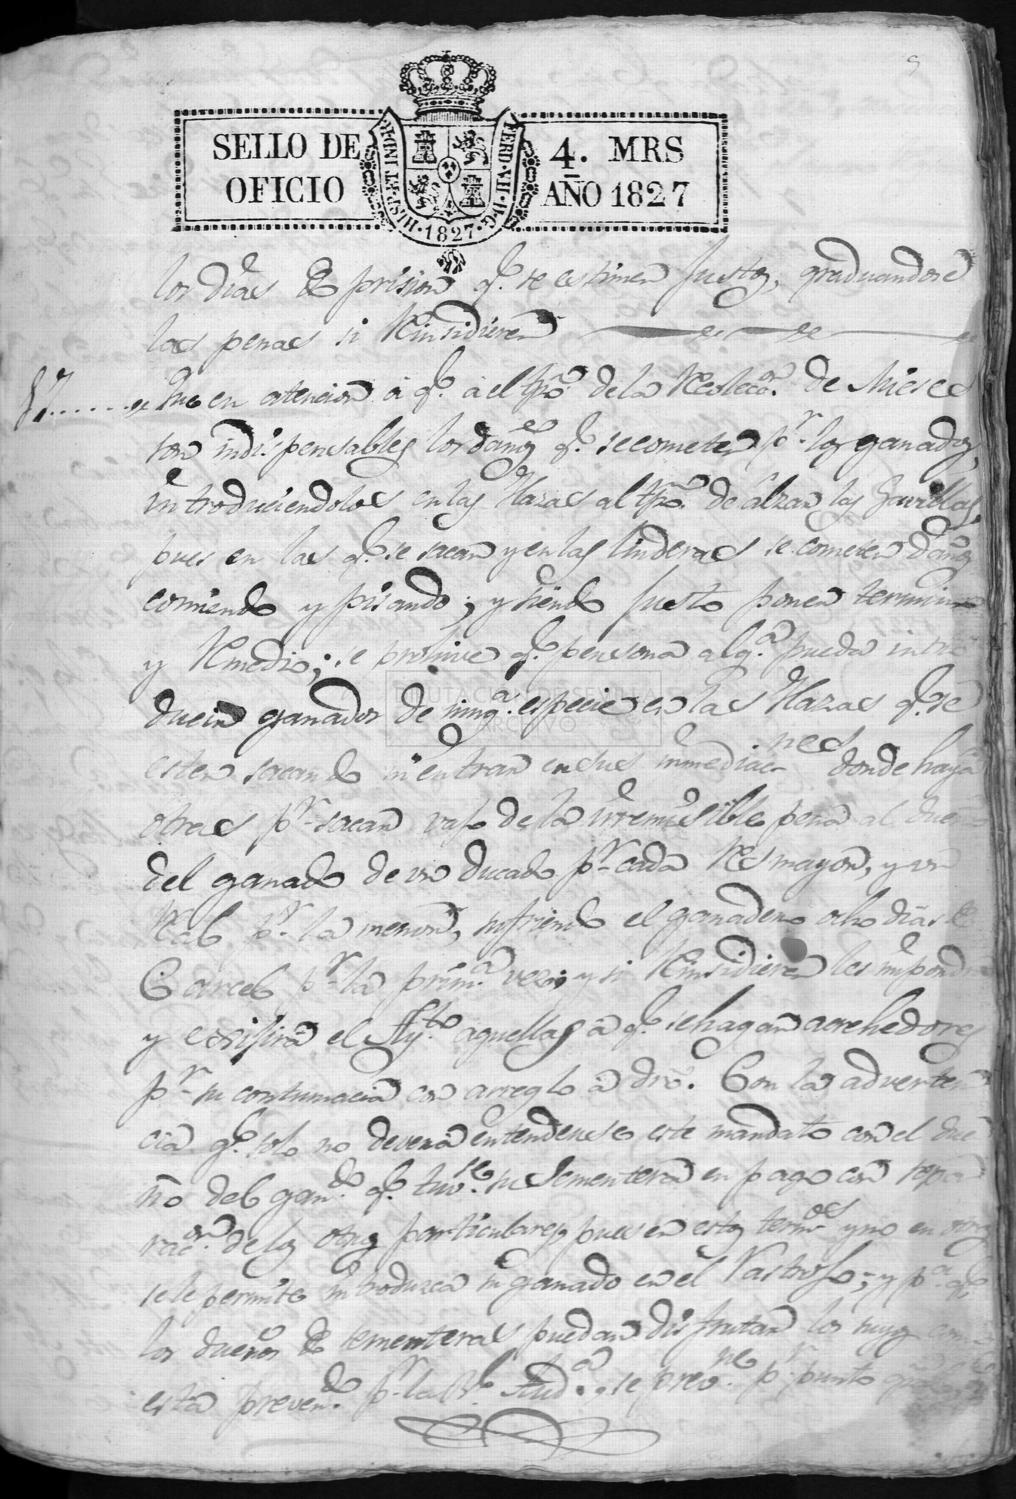 SELLO DE OFICIO
4. MRS AÑO 1827
HISP. ET IND. R. FERD. VII. D. G. 1827
los dias de prision q.e se estimen justos, graduandose
las penas si Reinsidieren
87 Que en atencion á q.e á el tpo de la Recolecc.on de Mieses
son indispensables los daños q.e se cometen p.r los ganados,
introduciendolos en las Hazas al tpo. de alzar las Gavillas,
pues en las q.e se sacan y en las linderas se cometen daños
comiendo y pisando; y siendo justo poner termino
y Remedio; se prohive q.e persona alg.a pueda intro
ducir ganados de ning.a especie en las Hazas q.e se
esten sacando ni entrar en sus inmediac.nes donde haya
otras p.r sacar vajo de la irremisible pena al due
del ganado de un ducado p.r cada Res mayor, y un
Real p.r la menor, sufriendo el ganadero ocho dias de
Carcel p.r la prim.a vez; y si Reinsidieren les impondra
y exsijira el Ay.to aquellas á q.e se hagan acrehedores
p.r su contumacia con arreglo á dro. Con la adverten
cia q.e solo no devera entenderse este mandato con el due
ño del gan.do q.e tuv.se su Sementera en pago con sepa
rac.on de los otros particulares pues en estos term.os y no en otros
se le permite introduzca su ganado en el Rastrojo; y p.a q.e
los dueños de sementeras puedan disfrutar los suyos como
está preven.do p.r la R.l Aud.a, se prev.ne p.r punto
DIPUTACION DE SEVILLA
ARCHIVO